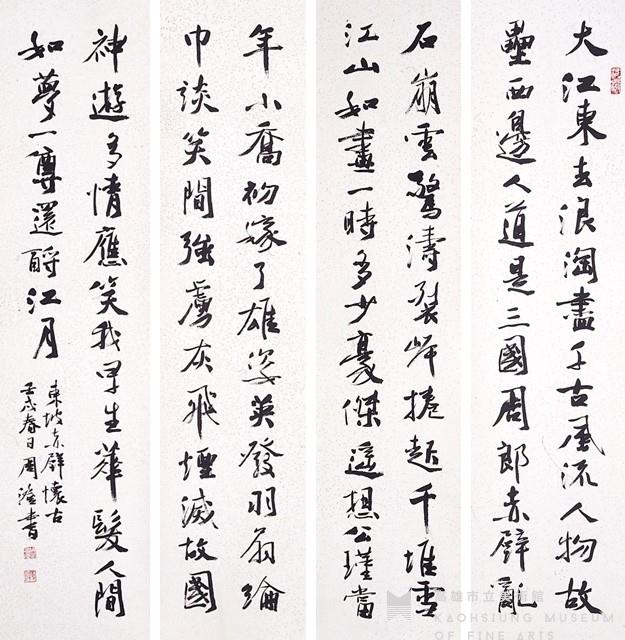 大江東去浪淘盡千古風流人物故
壘西邊人道是三國周郎赤壁亂
石崩雲驚濤裂岸捲起千堆雪
江山如畫一時多少豪傑遙想公瑾當
年小喬初嫁了雄姿英發羽扇綸
巾談笑間強虜灰飛煙滅故國
神遊多情應笑我早生華髮人間
如夢一尊還酹江月
東坡赤壁懷古
壬戌春日周澄書
高雄市立美術館
KAOHSIUNG MUSEUM
OF FINE ARTS